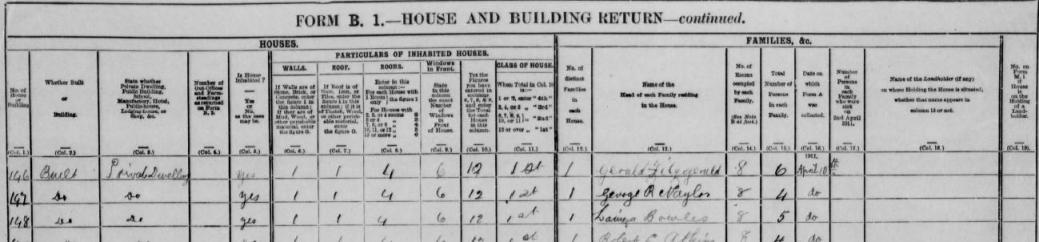 FORM B. 1.—HOUSE AND BUILDING RETURN—continued.
HOUSES.
FAMILIES, &c.
PARTICULARS OF INHABITED HOUSES.
WALLS.
ROOF.
ROOMS.
Windows in Front.
CLASS OF HOUSE.
No. of House or Building.
Whether Built or Building.
State whether Private Dwelling, Public Building, School, Manufactory, Hotel, Public-house, Lodging-house, or Shop, &c.
Number of Out-Offices and Farm-steadings as returned on Form B. 2.
Is House Inhabited? Yes or No as the case may be.
State in this column the exact Number of Windows in Front of House.
No. of distinct Families in each House.
Name of the Head of each Family residing in the House.
No. of Rooms occupied by each Family.
Total Number of Persons in each Family.
Date on which Form A was collected.
Number of Persons in each Family who were sick on 2nd April 1911.
Name of the Landholder (if any) on whose Holding the House is situated, whether that name appears in column 13 or not.
(Col. 1.) (Col. 2.) (Col. 3.) (Col. 4.) (Col. 5.) (Col. 6.) (Col. 7.) (Col. 8.) (Col. 9.) (Col. 10.) (Col. 11.) (Col. 12.) (Col. 13.) (Col. 14.) (Col. 15.) (Col. 16.) (Col. 17.) (Col. 18.) (Col. 19.)
1911.
146 Built Private Dwelling yes 1 1 4 6 12 1st 1 Gerald Fitzgerald 8 6 April 10th
147 Do Do yes 1 1 4 6 12 1st 1 George R Naylor 8 4 do
148 Do Do yes 1 1 4 6 12 1st 1 Bowles 8 5 do
1 1 1st 1 Robert C 8 4 do